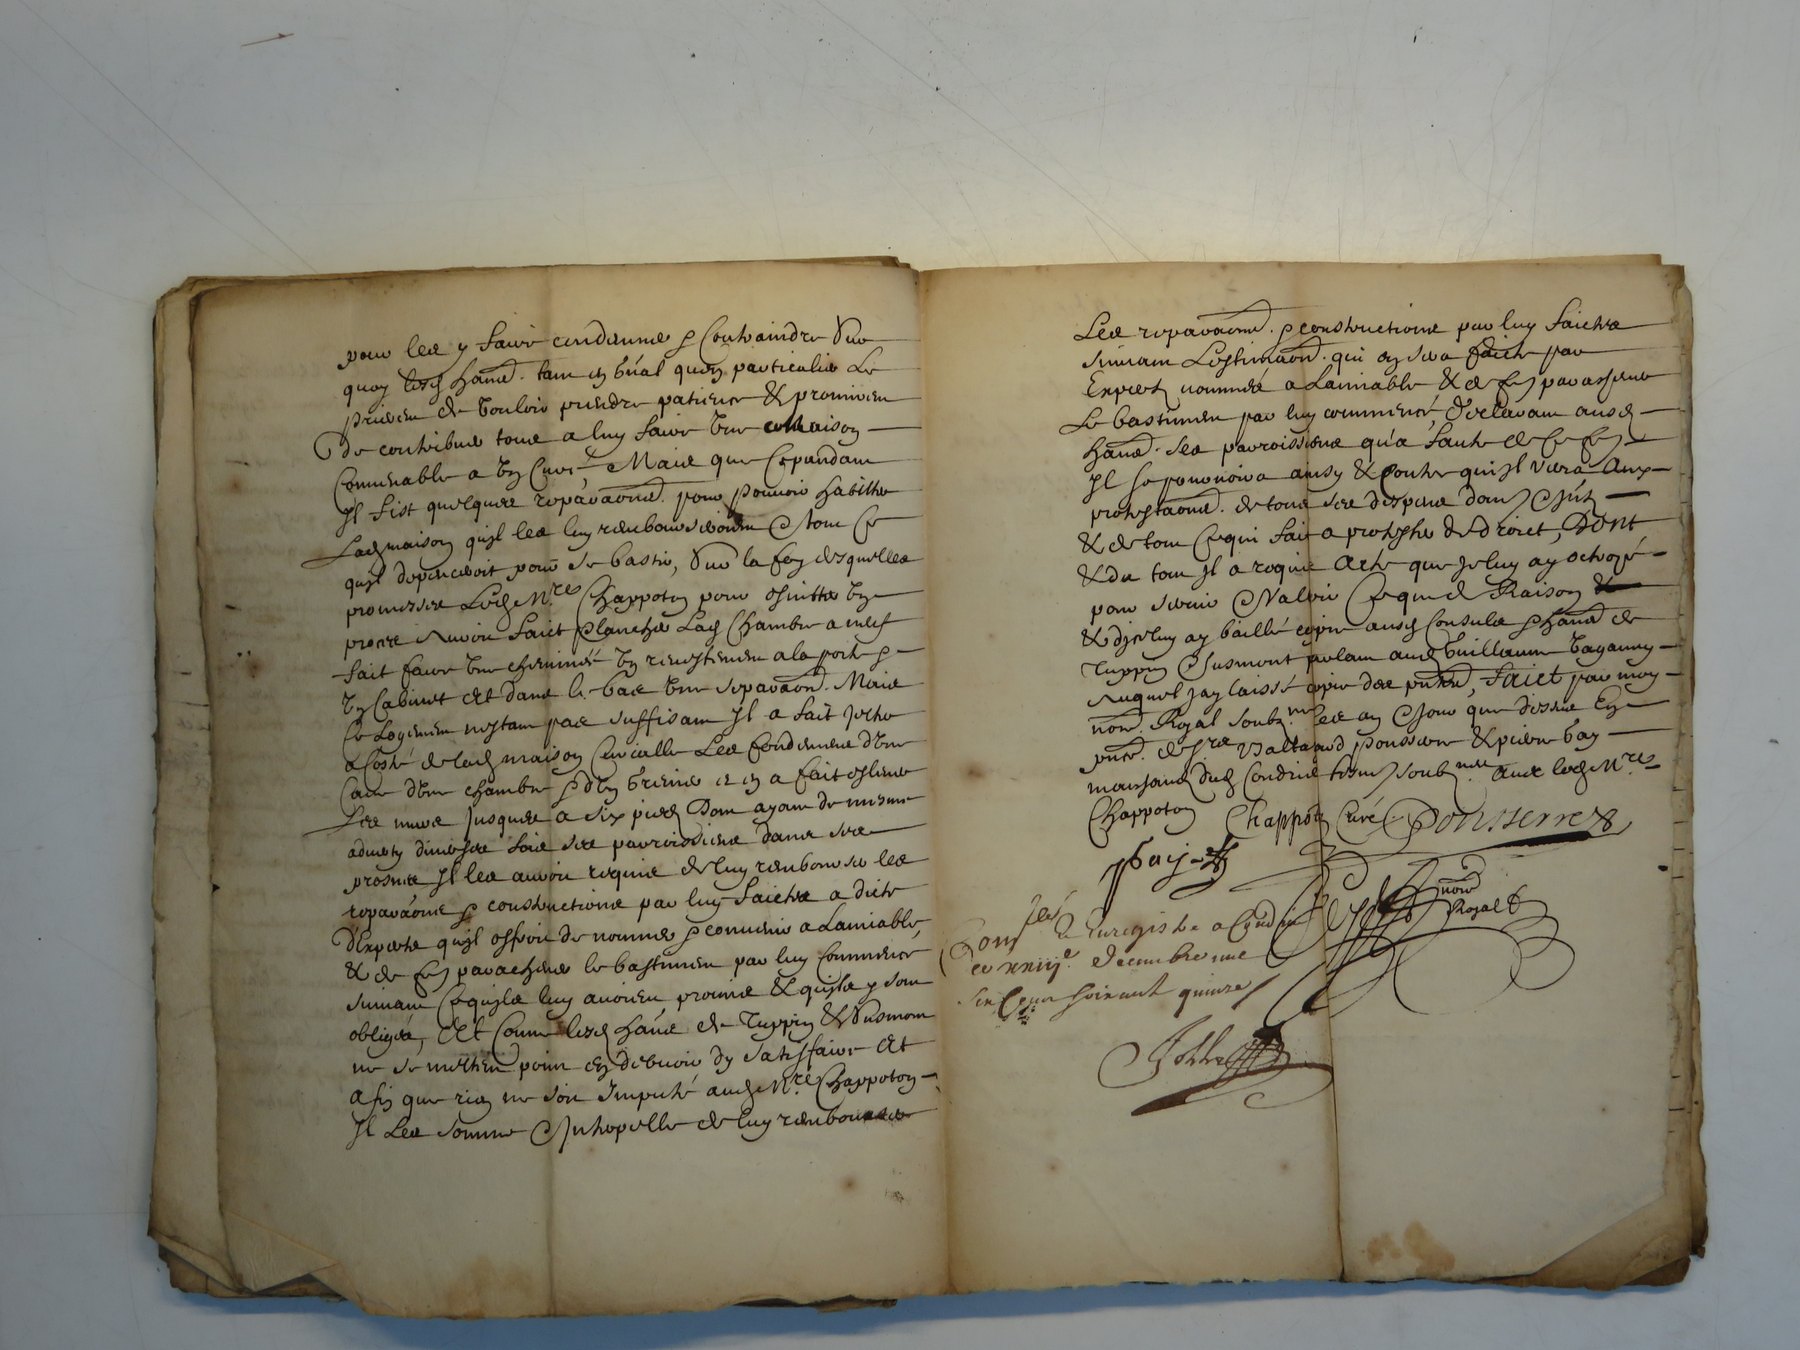 pour les y faire condanner & Contraindre Sur
quoy lesd habitᵃⁿˢ. tant en gn̄al quen particulier Le
prierent de Vouloir prendre patience & promirent
De contribuer tous a luy faire Vne maison
Convenable a Vn Curé, Mais que Cependant
Jl fist quelques repāraōns. pour pouvoir habitter
Lad maison quil les luy rembourseroient & tout Ce
quil depenceroit pour se bastir, Sur la foy desquelles
promesses Led Mʳᵉ Chappoton pour esvitter Vn
proces auroit faict Plancher Lad Chambre a neuf
fait faire Vne cheminée Vn revestement a la porte &
Vn Cabinet Et dans le bas Vne separāon. Mais
Ce Logement nestant pas suffisant Jl a fait jetter
a Costé de lad maison Curialle Les fondements d'Vne
Cave d'Vne chambre & d'Vn Grenier et en a fait eslever
Les murs jusques a six pieds Dont ayant de mesme
adverty diverses fois ses parroissiens dans ses
prosnes Jl les auroit requis de luy rembourser les
repāraōns & constructions par luy faictes a dicte
d'Experts quil offroit de nommer & convenir a Lamiable,
& de fe. parachever le bastiment par luy Commencé
suivant Ce quils luy avoient promis & quils y sont
obligés, Et Comme lesd habᵃⁿˢ de Tuppin & Susmont
ne se mettent point en debvoir dy satisfaire Et
afin que rien ne soit Imputé aud Mʳᵉ Chappoton
Jl Les somme & Interpelle de luy rembourser
Les repāraōns. & constructions par luy faictes
suivant Lestimaōn. qui en sera faicte par
Experts nommés a Lamiable & de fe. parachever
Le bastiment par luy commencé, Declarant ausd
habᵃⁿˢ. ses parroissiens qua faute de Ce fe.
Jl se pourvoira ainsy & Contre quil verra Aux
protestaōns. de tous ses despens dom. & Jnts
& de tout Ce qui fait a protester de droict, DONT
& du tout Jl a requis Acte que Je luy ay octroyé
pour servir & Valoir Ce que de Raison
& dicelluy ay baillé copie ausd Consuls & habᵃⁿˢ de
Tuppin & Susmont parlant aud Guillaume Vaganay
Auquel jay laissé copie des pntes, faict par moy
noʳᵉ. Royal soubzⁿᵉ les an & jour que dessus En
pnce. de sʳ Baltazard Ponsserre & pierre bay
marchands dud Condrieu tesm. soubⁿᵉˢ. avec led Mʳᵉ
Chappoton Chappoton Curé Ponsserre
P bay
noʳᵉ
Royal
Enregistre a Condrieu
ce xxiiijᵉ decembre mil
six Cent soixante quinze